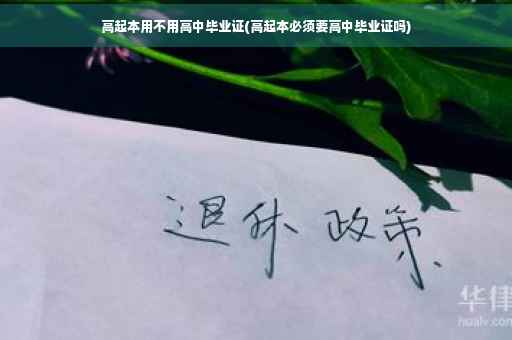 高起本用不用高中毕业证(高起本必须要高中毕业证吗)
退休 政策
华律
hualv.com